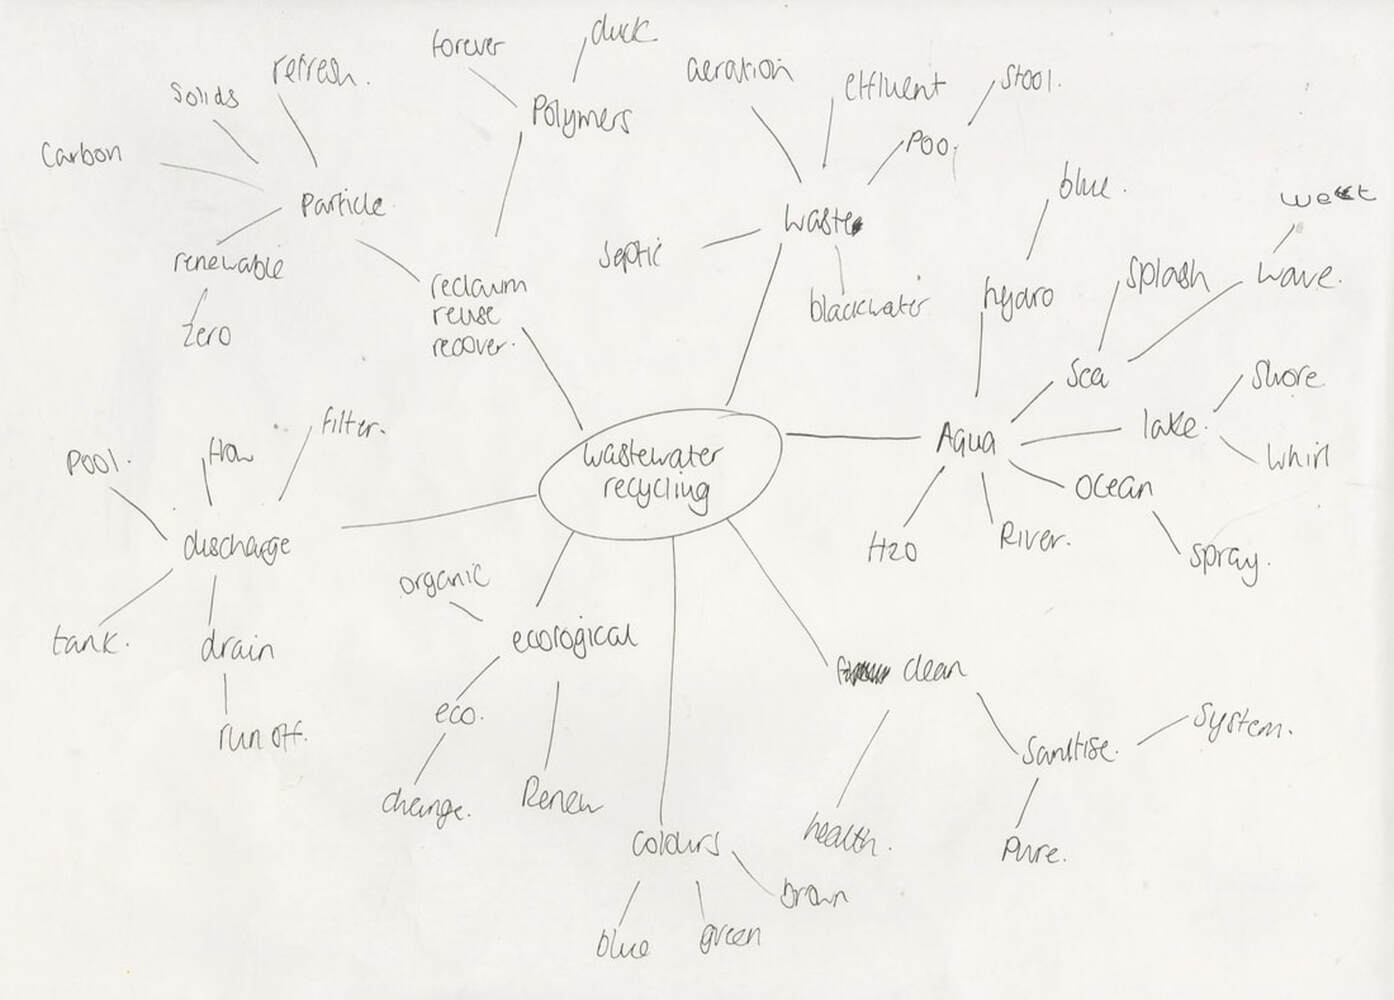 forever
duck
aeration
effluent
Stool.
refresh.
Solids
Polymers
Poo.
Carbon
Particle
blue.
Waste
Septic
renewable
blackwater
hydro
Splash
wave.
reclaim
reuse
recover.
Zero
Sea
Shore
filter.
flow
Pool.
lake.
Whirl
Aqua
wastewater
recycling
Ocean
discharge
H2O
River.
Spray.
organic
tank.
drain
ecological
clean
eco.
run off.
Sanitise.
System.
change.
Renew
health.
Pure.
colours
brown
blue
green